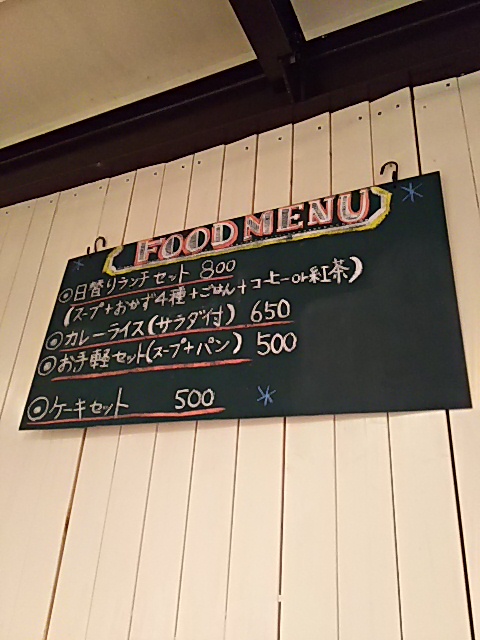 FOOD MENU
◉日替りランチセット 800
(スープ+おかず4種+ごはん+コーヒーor紅茶)
◉カレーライス(サラダ付) 650
◉お手軽セット(スープ+パン) 500
◉ケーキセット 500